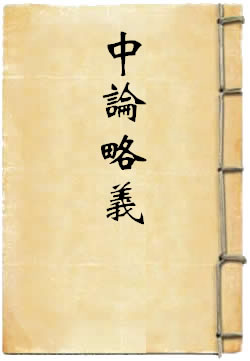 中論略義